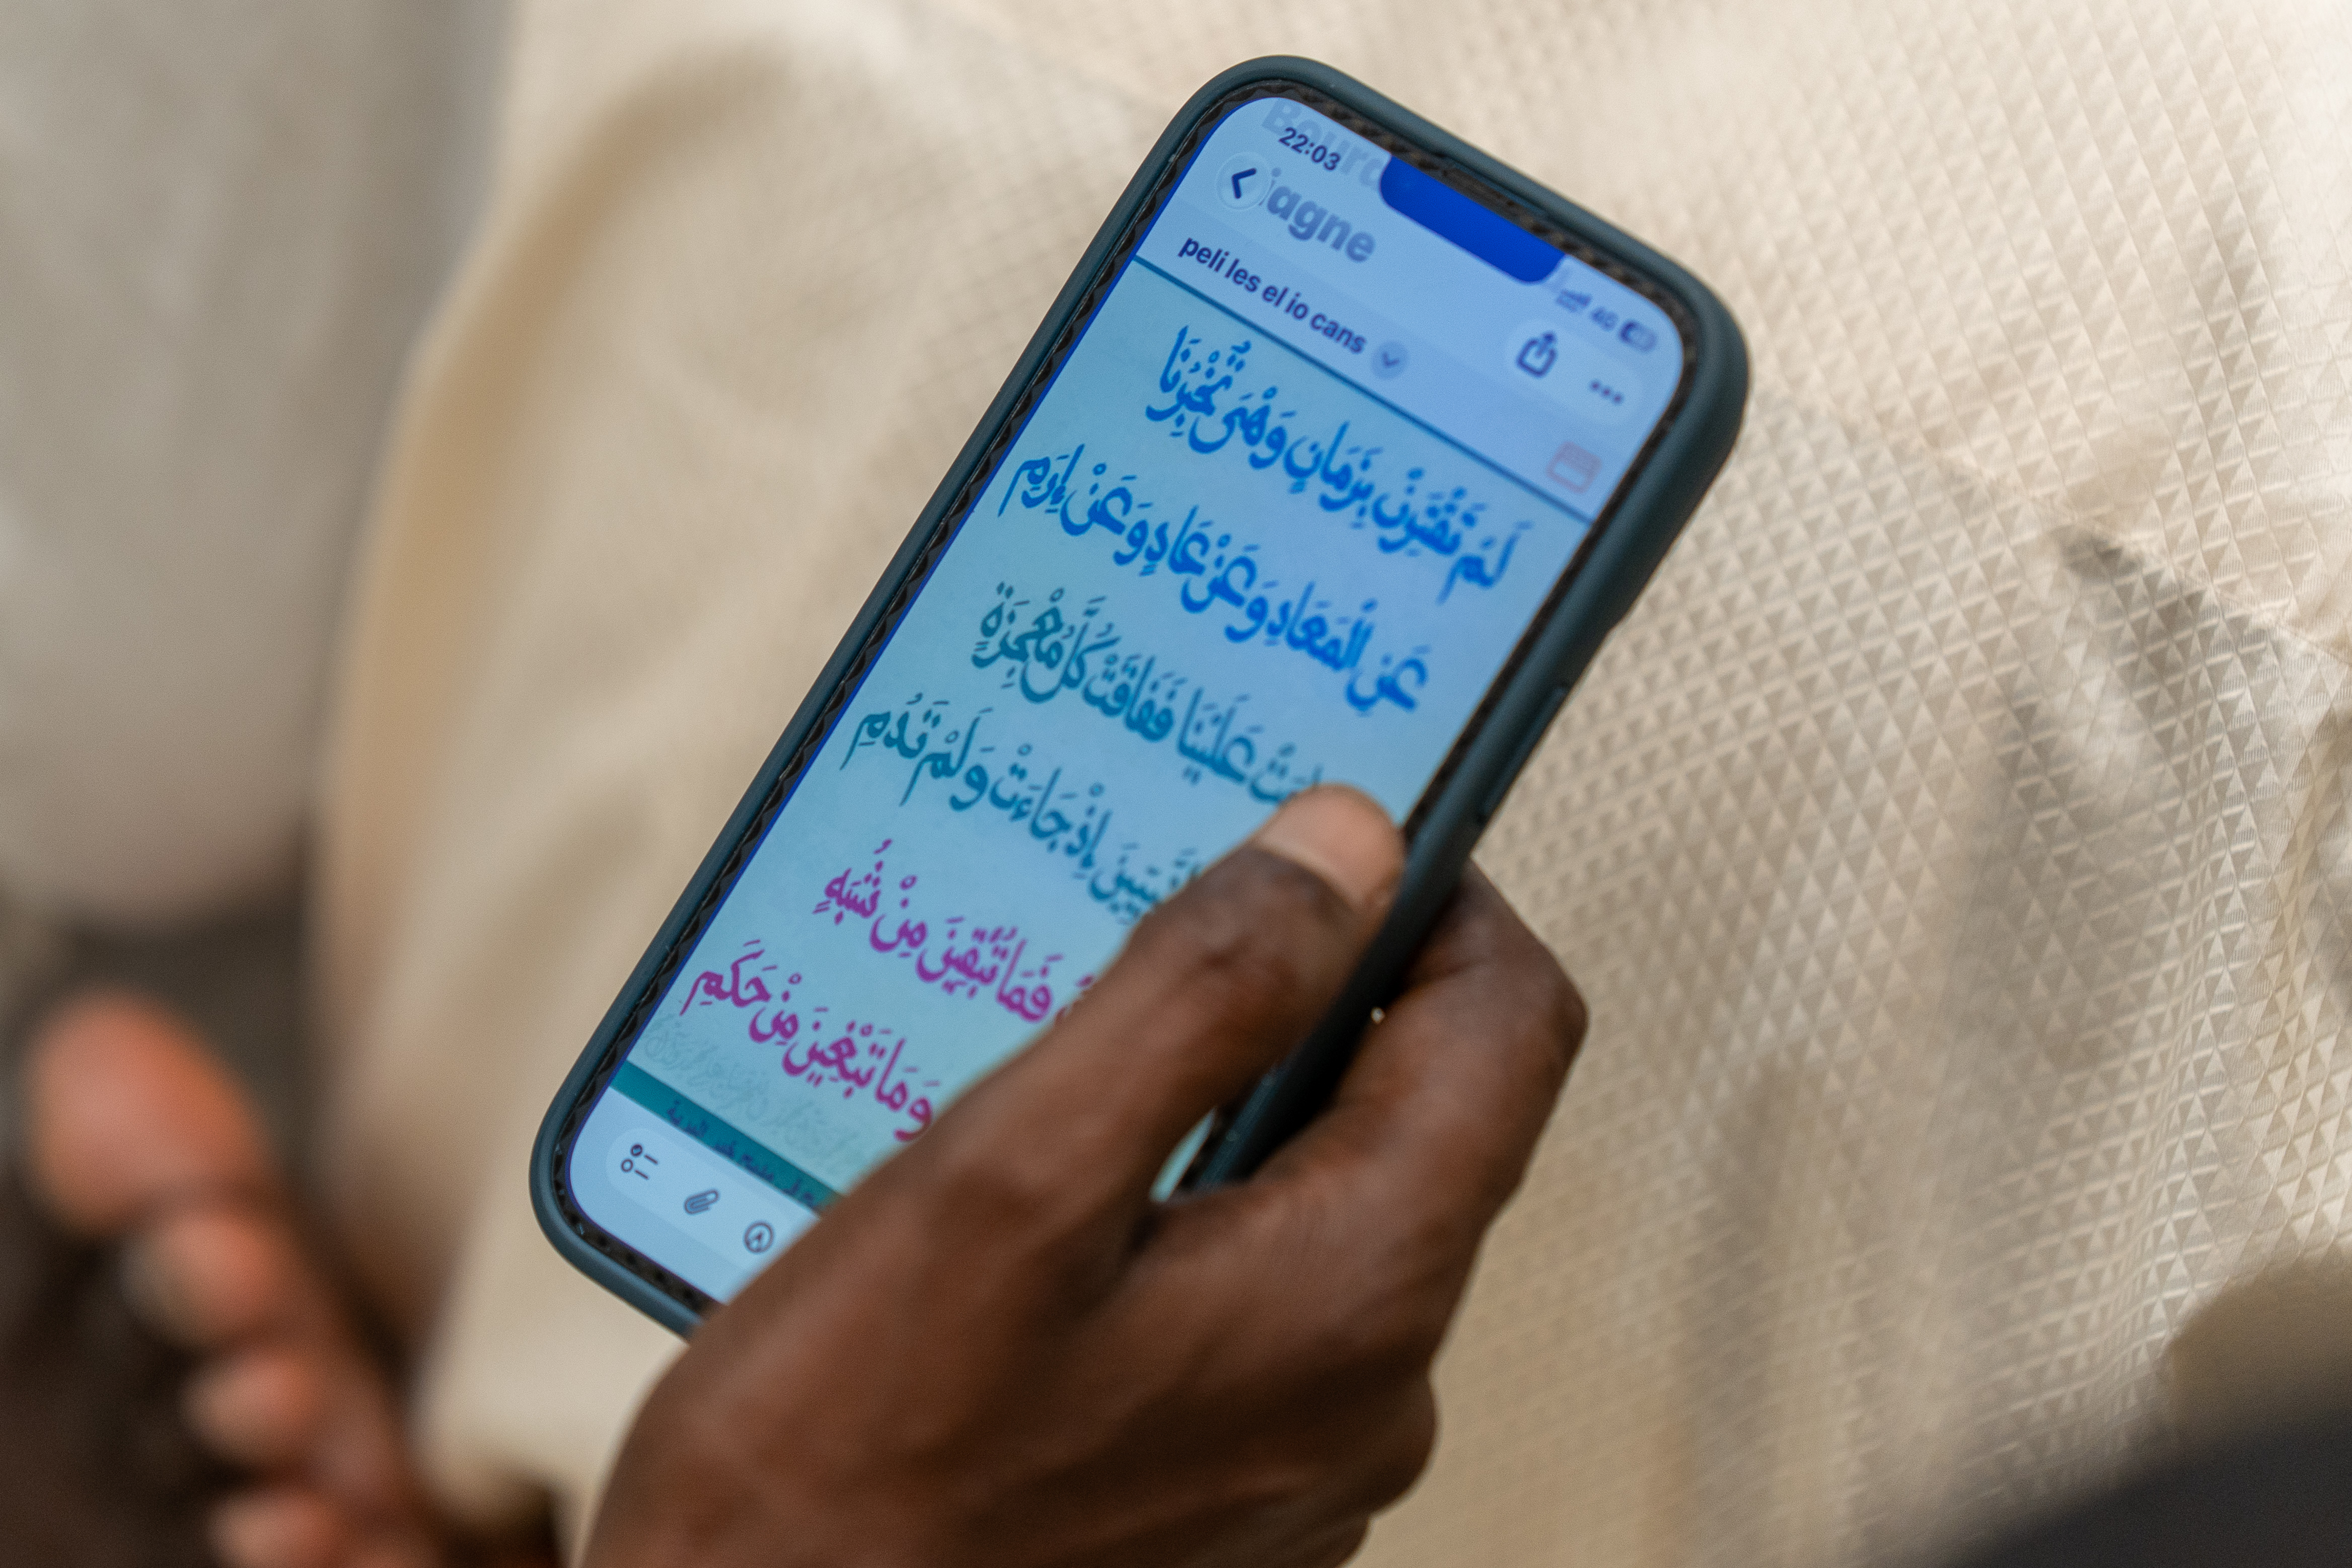 22:03
iagne
4G
peli les el io cans
لَمْ تَقْتَرِنْ بِزَمَانٍ وَهْىَ تُخْبِرُنَا
عَنِ الْمَعَادِ وَعَنْ عَادٍ وَعَنْ إِرَمِ
عَلَيْنَا فَفَاقَتْ كُلَّ مُعْجِزَةٍ
النَّبِيِّينَ إِذْ جَاءَتْ وَلَمْ تَدُمِ
فَمَا تُبْقِينَ مِنْ شُبَهٍ
وَمَا تَبْغِينَ مِنْ حَكَمِ
مديح خير البرية